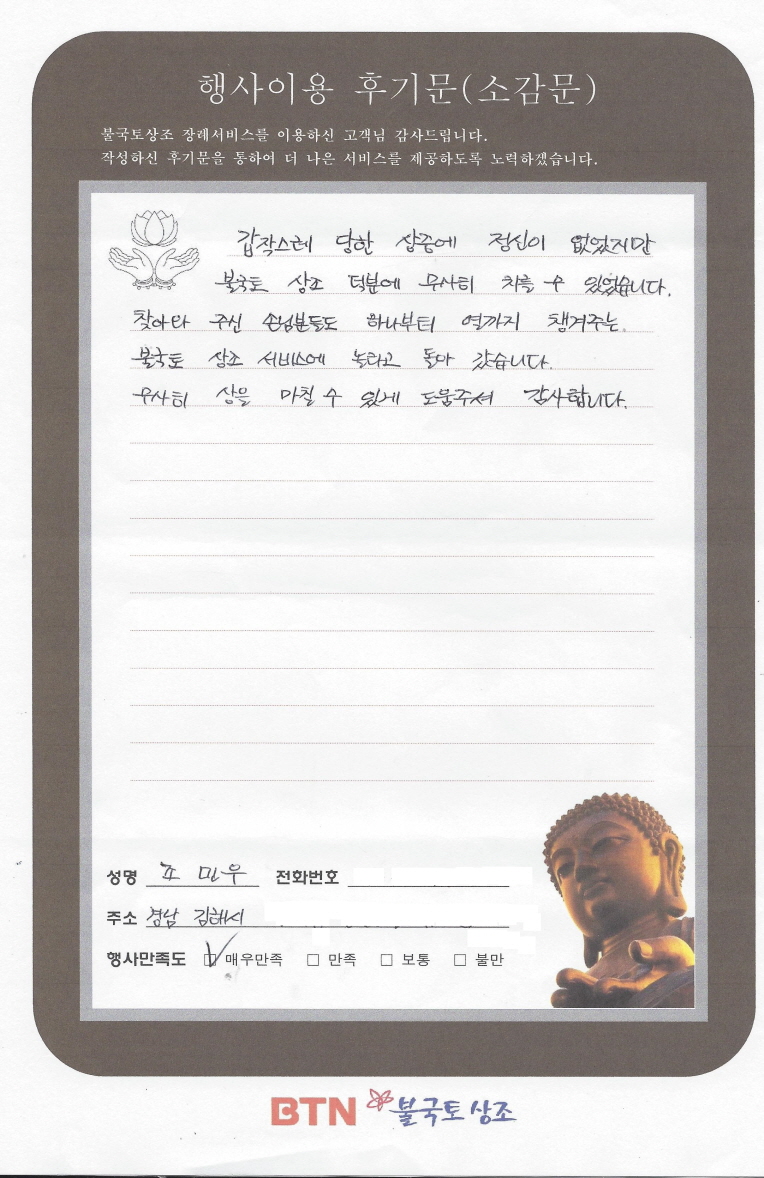 행사이용 후기문(소감문)
불국토상조 장례서비스를 이용하신 고객님 감사드립니다.
작성하신 후기문을 통하여 더 나은 서비스를 제공하도록 노력하겠습니다.
갑작스레 당한 상중에 정신이 없었지만
불국토 상조 덕분에 무사히 치를 수 있었습니다.
찾아와 주신 손님분들도 하나부터 열까지 챙겨주는
불국토 상조 서비스에 놀라고 돌아 갔습니다.
무사히 상을 마칠 수 있게 도움주셔 감사합니다.
성명 조 민우 전화번호
주소 경남 김해시
행사만족도 ☑ 매우만족 □ 만족 □ 보통 □ 불만
BTN 불국토 상조